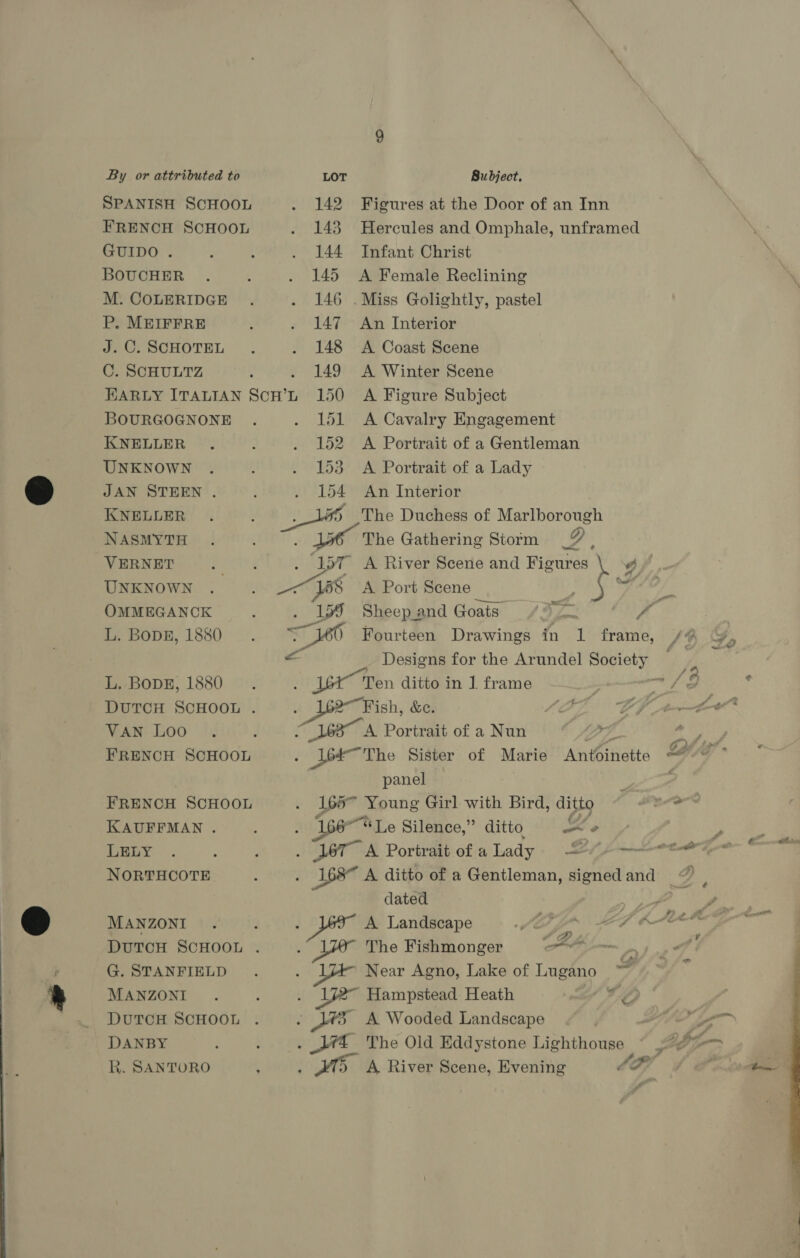 9
By or attributed to LOT Subject.
SPANISH SCHOOL . 142 Figures at the Door of an Inn
FRENCH SCHOOL . 143 Hercules and Omphale, unframed
GUIDO . . . . 144 Infant Christ
BOUCHER . . . 145 A Female Reclining
M. COLERIDGE . . 146 Miss Golightly, pastel
P. MEIFFRE . . 147 An Interior
J. C. SCHOTEL . . 148 A Coast Scene
C. SCHULTZ . . 149 A Winter Scene
EARLY ITALIAN SCH'L 150 A Figure Subject
BOURGOGNONE . . 151 A Cavalry Engagement
KNELLER . . . 152 A Portrait of a Gentleman
UNKNOWN . . . 153 A Portrait of a Lady
JAN STEEN . . . 154 An Interior
KNELLER . . . 155 The Duchess of Marlborough
NASMYTH . . . 156 The Gathering Storm
VERNET . . . 157 A River Scene and Figures
UNKNOWN . . 158 A Port Scene
OMMEGANCK . . 159 Sheep and Goats
L. BODE, 1880 . 160 Fourteen Drawings in 1 frame,
Designs for the Arundel Society
L. BODE, 1880 . . 161 Ten ditto in 1 frame
DUTCH SCHOOL . . 162 Fish, &c.
VAN LOO . . . 163 A Portrait of a Nun
FRENCH SCHOOL . 164 The Sister of Marie Antoinette
panel
FRENCH SCHOOL . 165 Young Girl with Bird, ditto
KAUFFMAN . . . 166 "Le Silence," ditto
LELY . . . . 167 A Portrait of a Lady
NORTHCOTE . . 168 A ditto of a Gentleman, signed and
dated
MANZONI . . . 169 A Landscape
DUTCH SCHOOL . . 170 The Fishmonger
G. STANFIELD . . 171 Near Agno, Lake of Lugano
MANZONI . . . 172 Hampstead Heath
DUTCH SCHOOL . . 173 A Wooded Landscape
DANBY . . . 174 The Old Eddystone Lighthouse
R. SANTORO . . 175 A River Scene, Evening